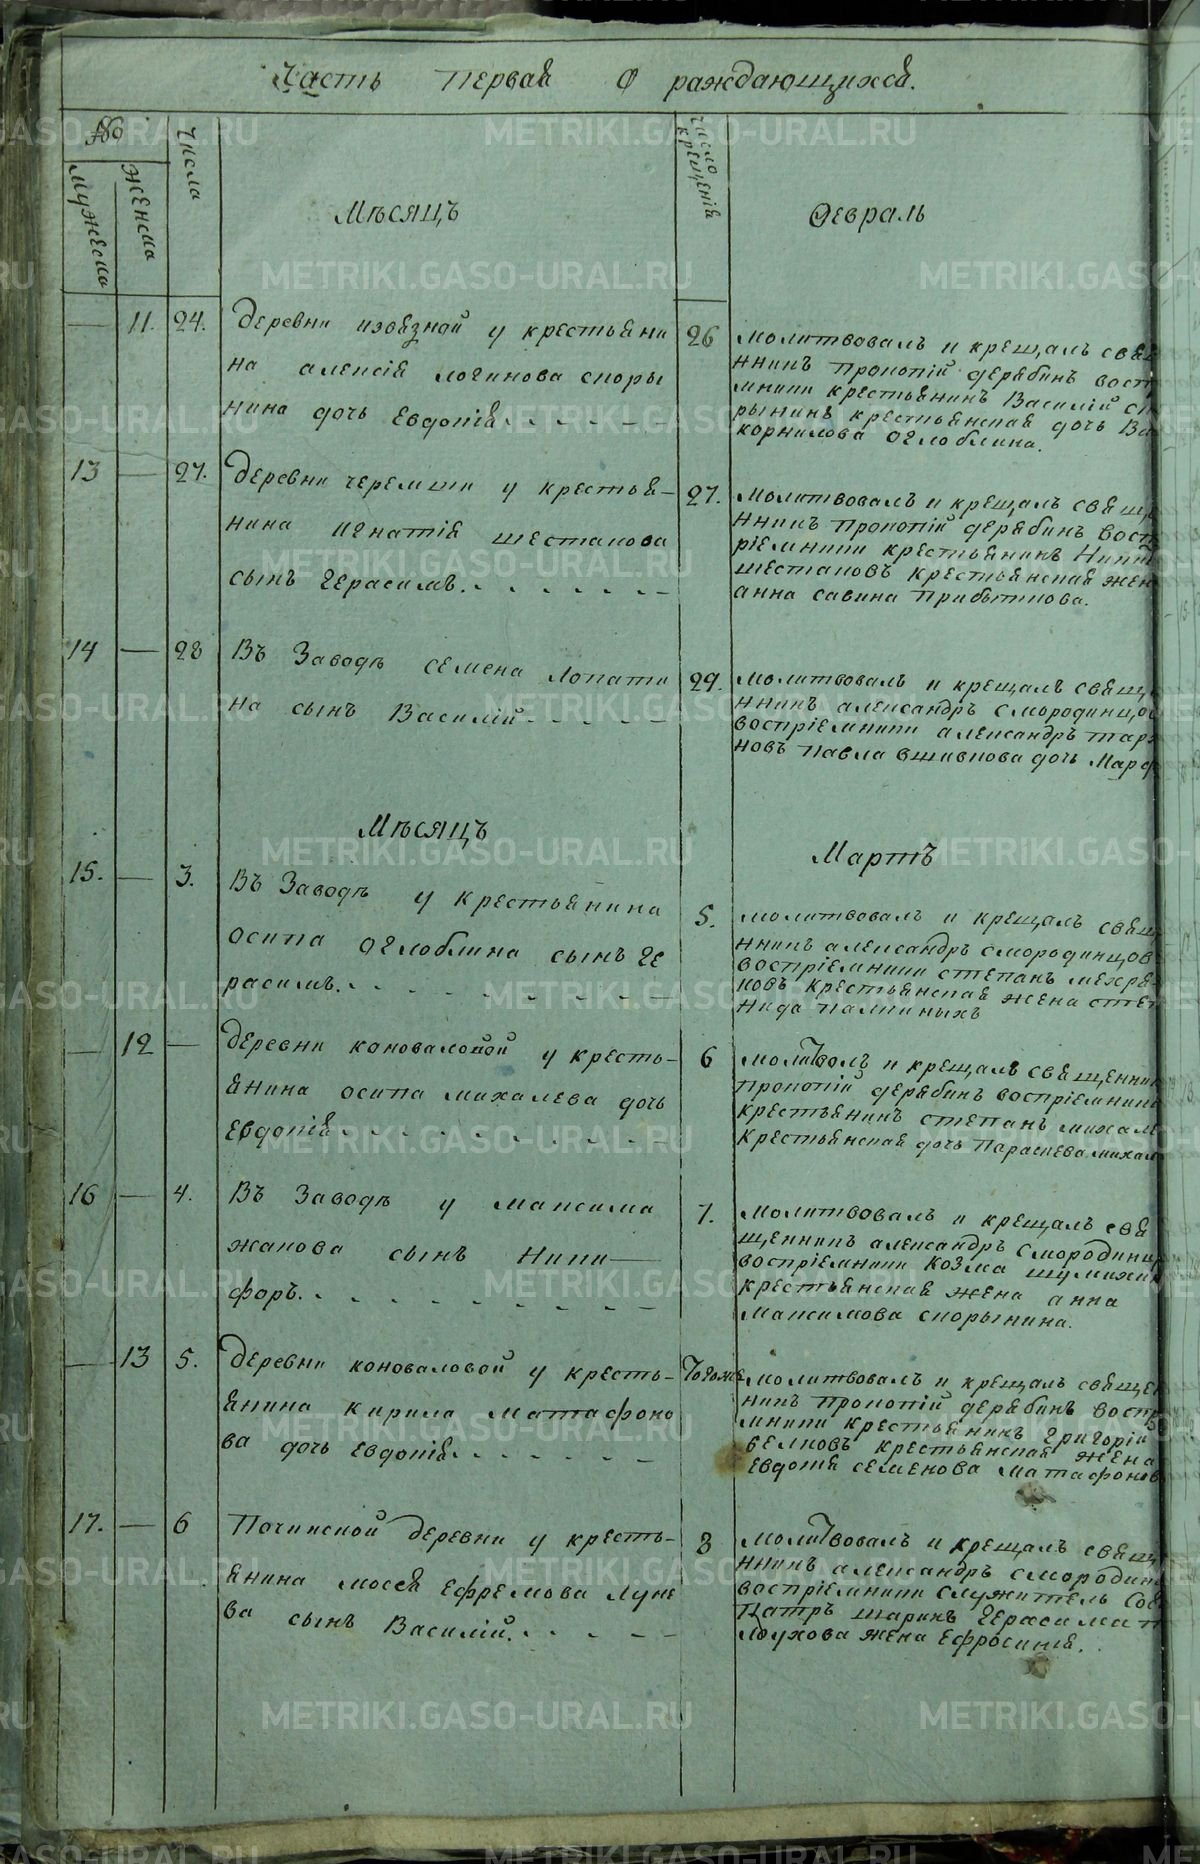 Часть Первая О раждающихся.
№
мужеска
женска
Числа
Мѣсяцъ
Число крещенія
Февраль
— 11. 24.
Деревни изъѣзной у крестьяни
на алексія логинова споры
нина дочь Евдокія
26
молитвовалъ и крещалъ свя
нникъ Прокопій дерябинъ восп
мники крестьянинъ Василій сп
рынинъ крестьянская дочь Ва
корнилова оглоблина.
13 — 27.
Деревни черемши у крестья-
нина игнатія шестакова
сынъ Герасимъ.
27.
молитвовалъ и крещалъ свящ
нникъ Прокопій дерябинъ вост
ріемники крестьянинъ Никит
шестаковъ крестьянская жен
анна савина Прибыткова.
14 — 28
Въ Заводѣ семена лопати
на сынъ Василій
29.
молитвовалъ и крещалъ свящ
нникъ александръ смородинцо
воспріемники александръ тара
новъ павла вшивкова дочь Марф
Мѣсяцъ
Мартъ
15. — 3.
Въ Заводѣ у крестьянина
осипа оглоблина сынъ Ге
расимъ.
5.
молитвовалъ и крещалъ свящ
нникъ александръ смородинцов
воспріемники степанъ мехря
ковъ крестьянская жена степ
нида палкиныхъ
— 12 —
деревни коноваловой у кресть-
янина осипа михалева дочь
Евдокія
6
молитвовалъ и крещалъ священник
прокопій дерябинъ воспріемники
крестьянинъ степанъ михал
крестьянская дочь Параскева михал
16 — 4.
Въ Заводѣ у максима
жакова сынъ Ники—
форъ.
7.
молитвовалъ и крещалъ свя
щенникъ александръ смородин
воспріемники козма шумихин
крестьянская жена анна
максимова спорынина.
— 13 5.
деревни коноваловой у кресть-
янина кирила матафоно
ва дочь евдокія
Тогожъ
молитвовалъ и крещалъ священ
никъ прокопій дерябинъ воспр
мники крестьянинъ григорій
белковъ крестьянская жена
евдокія семенова матафонов
17. — 6
Починской деревни у кресть-
янина моссея ефремова луне
ва сынъ Василій.
8
молитвовалъ и крещалъ свящ
нникъ александръ смородин
воспріемники служитель Сое
патръ шаринъ Герасима п
лоухова жена ефросинія.
METRIKI.GASO-URAL.RU